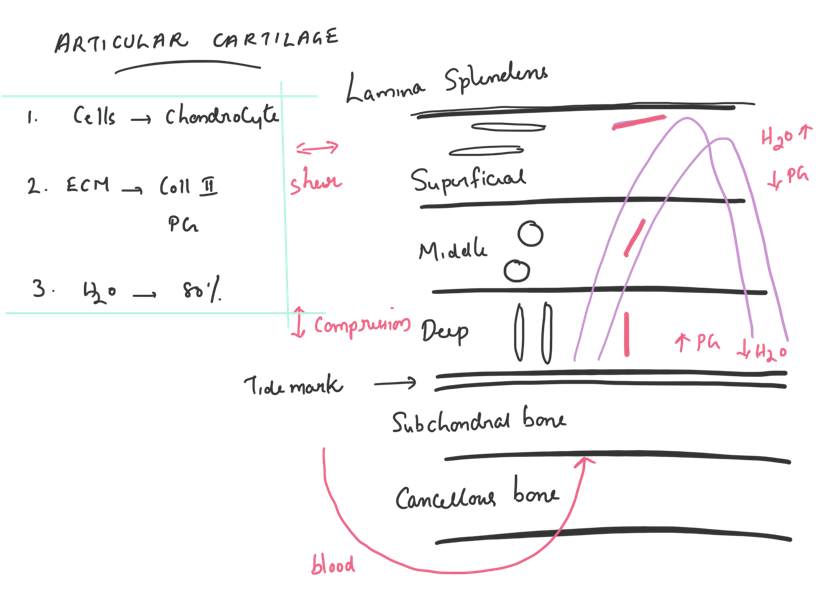 ARTICULAR CARTILAGE
1. Cells → Chondrocyte
2. ECM → Coll II
PG
3. H2O → 80%
Lamina Splendens
shear
Superficial
H2O ↑
↓ PG
Middle
↕ Compression
Deep
↑ PG ↓ H2O
Tide mark →
Subchondral bone
Cancellous bone
blood